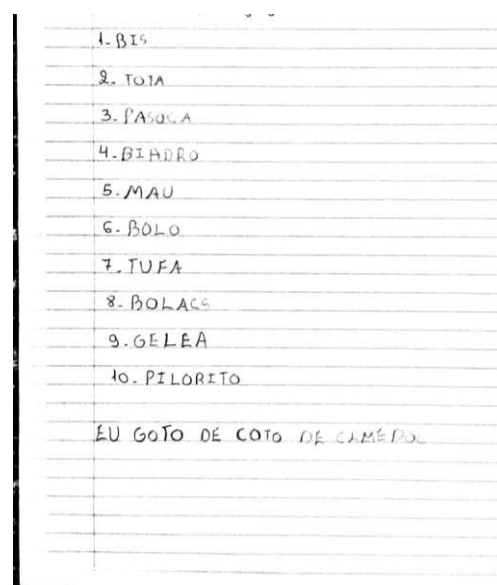 1. BIS
2. TOTA
3. PASOCA
4. BIADRO
5. MAU
6. BOLO
7. TUFA
8. BOLACS
9. GELEA
10. PILORITO
EU GOTO DE COTO DE